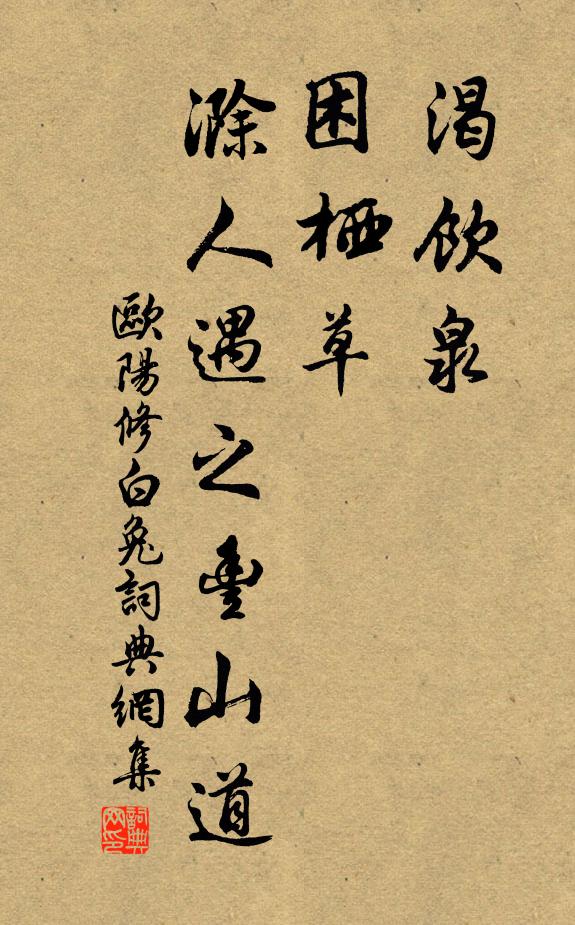 渴飲泉
困栖草
滁人遇之豐山道
歐陽修白兔詞典網集
詞典网印